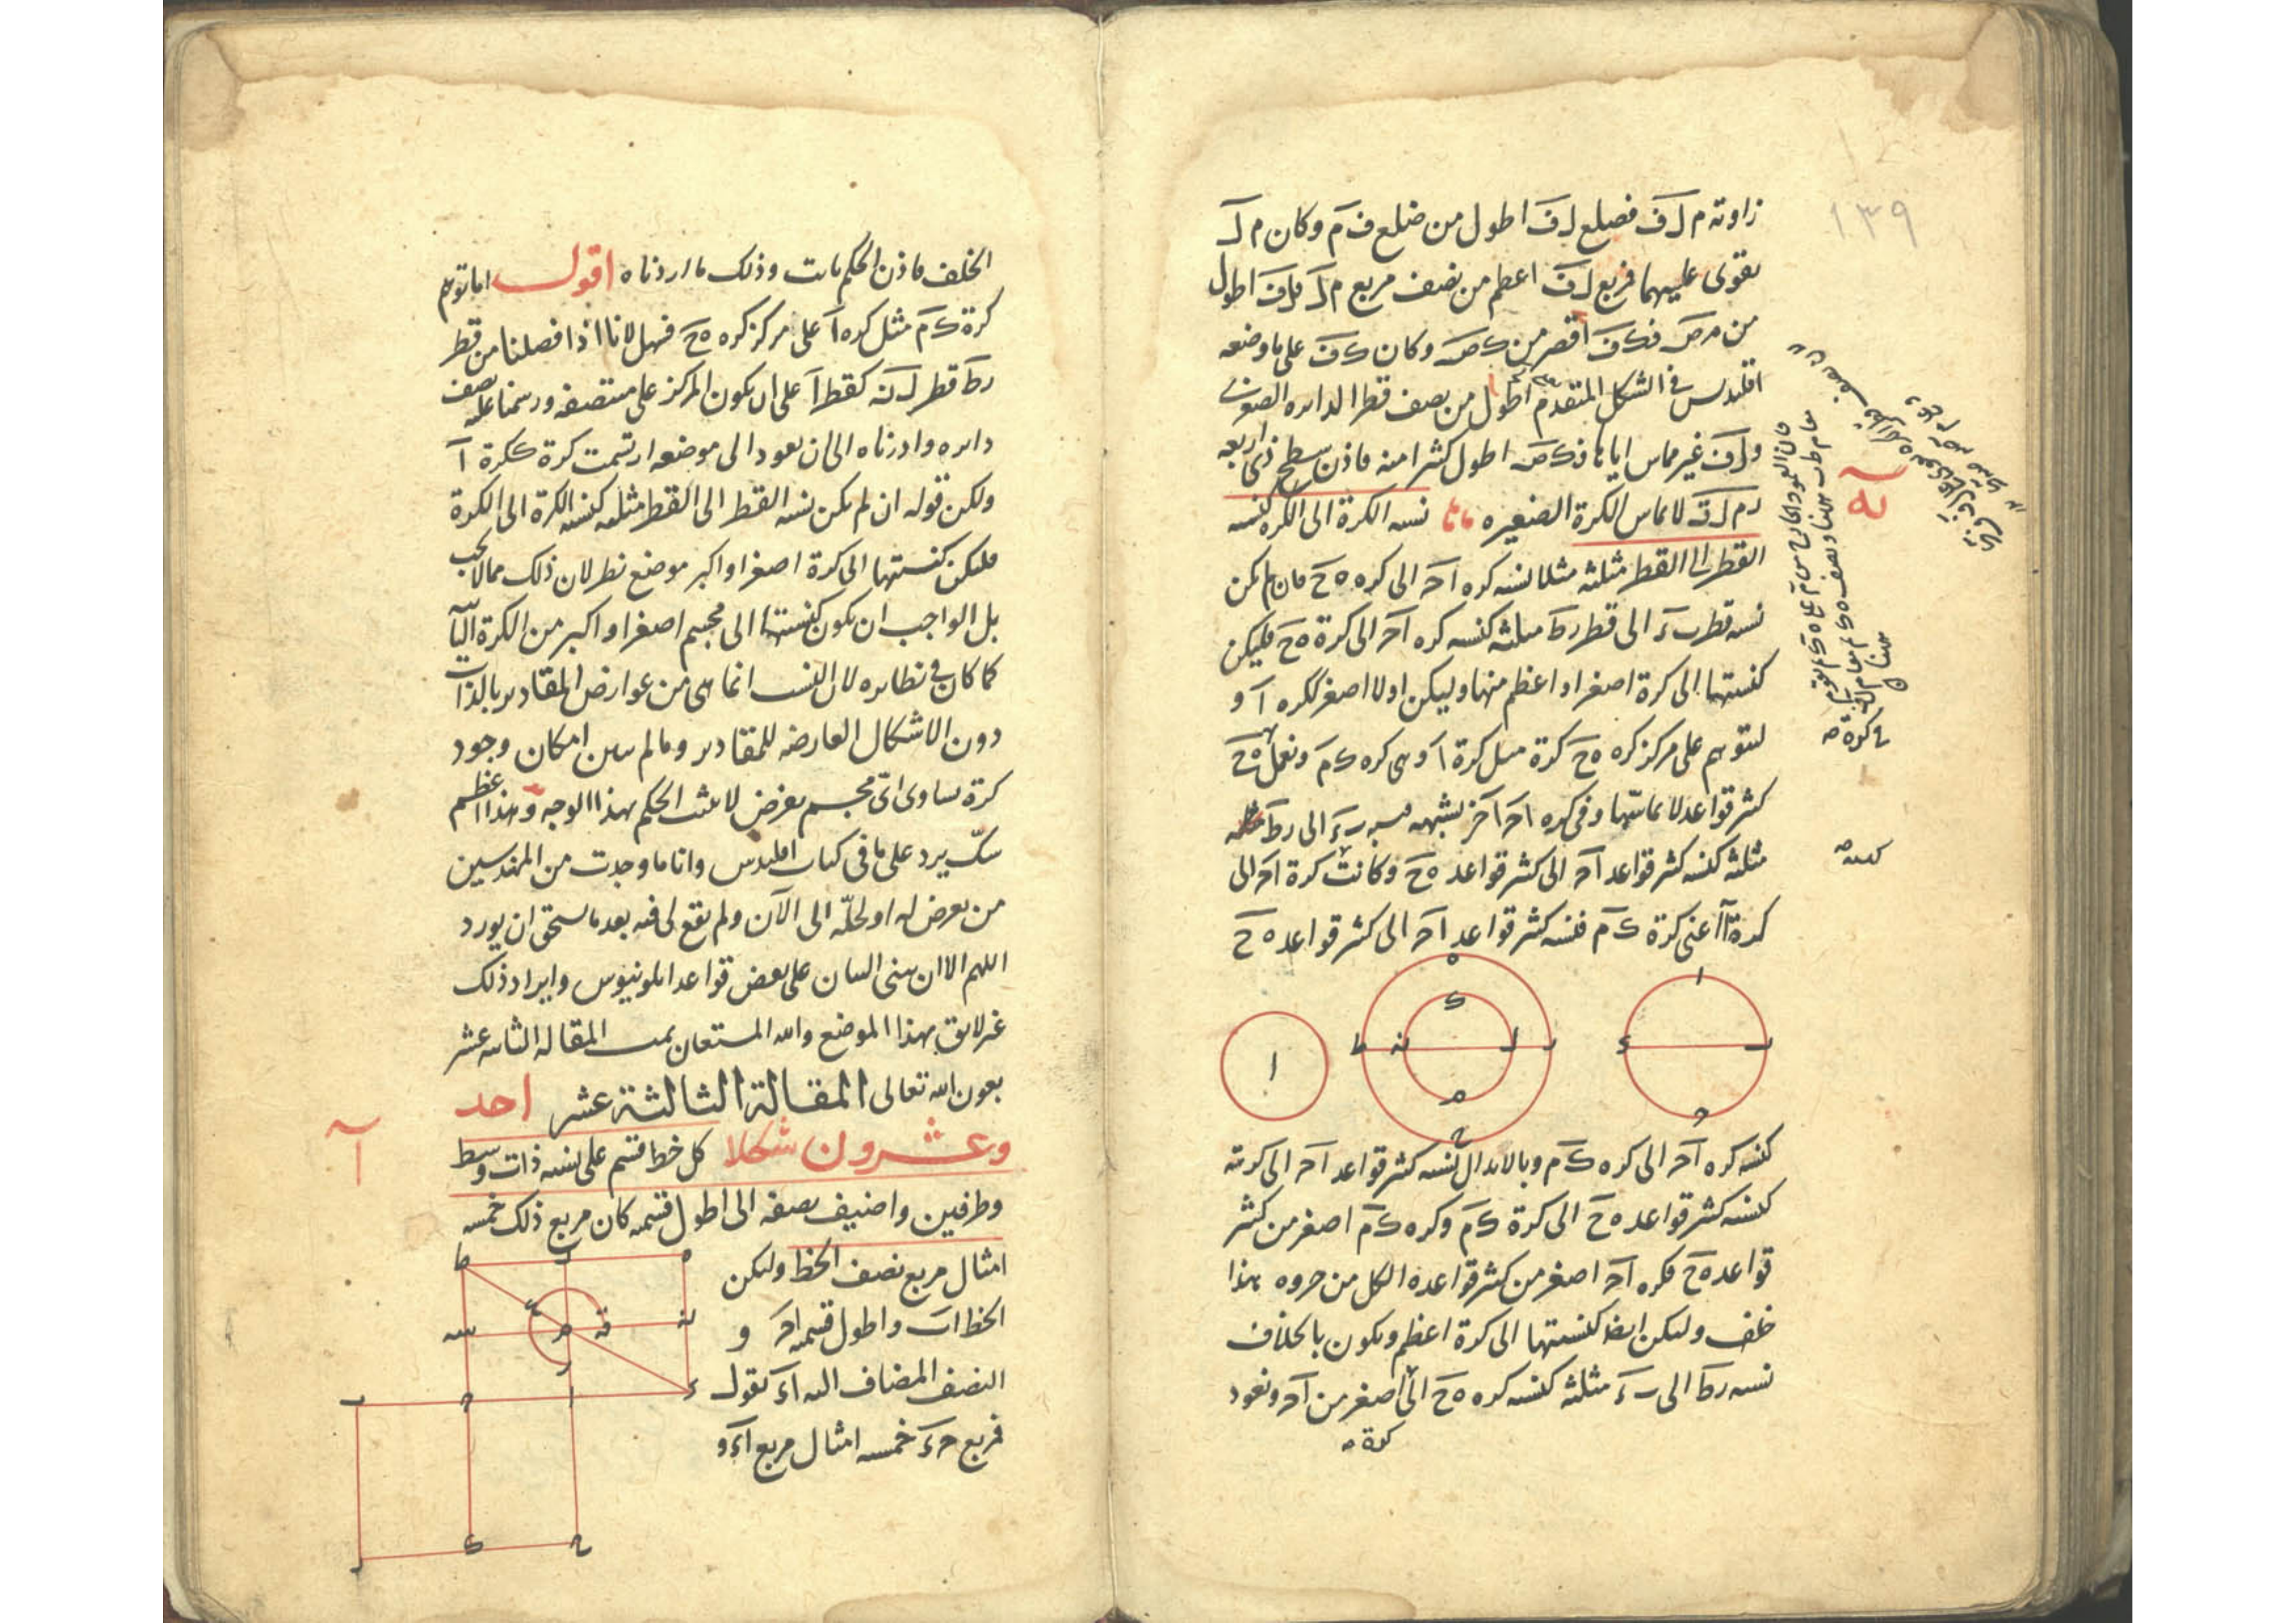 ١٣٩
زاوية م ل ف فضلع ل ف اطول من ضلع ف م وكان م ل
يقوى عليهما فمربع ل ف اعظم من نصف مربع م ل فل ف اطول
من م ص فك ف اقصر من ك ص وكان ك ف على ما وضعه
اقليدس في الشكل المتقدم اطول من نصف قطر الدايره الصغرى
ول ف غير مماس اياها فك ص اطول كثيرا منه فاذن سطح ذى اربعه
ر م ل ف لا يماس الكرة الصغيره
يه
نسبه الكرة الى الكره كنسبه
القطر الى القطر مثلثه مثلا نسبه كره ا ح الى كره ه ح فان لم يكن
نسبه قطر ب د الى قطر ر ط مثلثه كنسبه كره ا ح الى كرة ه ح فليكن
كنسبتها الى كرة اصغر او اعظم منها وليكن اولا اصغر ككره ا و
ليتوهم على مركز كره ه ح كرة مثل كرة ا وهى كره ك م ونعمل فى ه ح
كثير قواعد لا يماسها وفى كره ا ح اخر يشبهه فنسبه ب د الى ر ط
مثلثه كنسبه كثير قواعد ا ح الى كثير قواعد ه ح وكانت كرة ا ح الى
كرة ا اعنى كرة ك م فنسبه كثير قواعد ا ح الى كثير قواعد ه ح
ا
ا
ب
د
ح
ه
ك
ر
ل
ن
ط
م
ح
كنسبه كره ا ح الى كره ك م وبالابدال نسبه كثير قواعد ا ح الى كرته
كنسبه كثير قواعد ه ح الى كرة ك م وكره ك م اصغر من كثير
قواعد ه ح فكره ا ح اصغر من كثير قواعده الكل من جزوه هذا
خلف وليكن ايضا كنسبتها الى كرة اعظم ويكون بالخلاف
نسبه ر ط الى ب د مثلثه كنسبه كره ه ح الى اصغر من ا ح ونعود
كرة
الخلف فاذن الحكم ثابت وذلك ما اردناه اقول اما توهم
كرة ك م مثل كره ا على مركز كره ه ح فسهل لانا اذا فصلنا من قطر
ر ط قطر ل ن كقطر ا على ان يكون المركز على منتصفه ورسمنا عليه نصف
دايره وادرناه الى ان يعود الى موضعه ارتسمت كرة ككرة ا
ولكن قوله ان لم يكن نسبه القطر الى القطر مثلثه كنسبه الكرة الى الكرة
فليكن كنسبتها الى كرة اصغر او اكبر موضع نظر لان ذلك مما لا يجب
بل الواجب ان يكون كنسبتها الى مجسم اصغر او اكبر من الكرة الثانيه
كما كان فى نظايره لان النسب انما هى من عوارض المقادير بالذات
دون الاشكال العارضه للمقادير وما لم يبين امكان وجود
كرة يساوى اى مجسم يفرض لا يثبت الحكم بهذا الوجه وهذا اعظم
شك يرد على ما فى كتاب اقليدس وانا ما وجدت من المهندسين
من تعرض له او لحله الى الآن ولم يقع لى فيه بعد ما يستحق ان يورد
اللهم الا ان يبنى البيان على بعض قواعد ابلونيوس وايراد ذلك
غير لايق بهذا الموضع والله المستعان تمت المقاله الثانيه عشر
بعون الله تعالى المقالة الثالثة عشر احد
وعشرون شكلا كل خط قسم على نسبه ذات وسط
ا
وطرفين واضيف نصفه الى اطول قسميه كان مربع ذلك خمسه
امثال مربع نصف الخط وليكن
الخط ا ب واطول قسميه ا ح و
النصف المضاف اليه ا د نقول
فمربع ح د خمسه امثال مربع ا د و